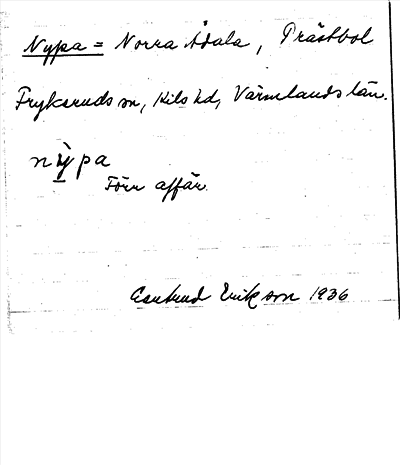 Nypa = Norra Ådala, Prästbol
Frykeruds sn, Kils hd, Värmlands län.
nỳpa
Förr affär.
Erikson 1936